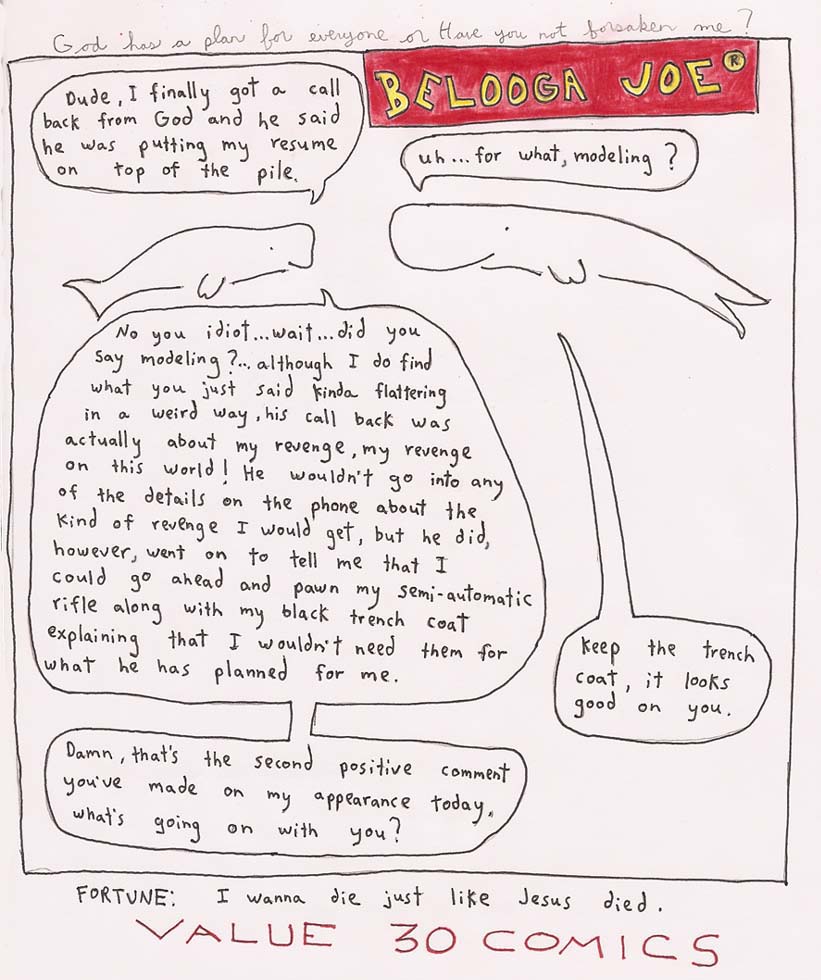 God has a plan for everyone or Have you not forsaken me?
BELOOGA JOE®
Dude, I finally got a call
back from God and he said
he was putting my resume
on top of the pile.
uh...for what, modeling?
No you idiot...wait...did you
say modeling?... although I do find
what you just said kinda flattering
in a weird way, his call back was
actually about my revenge, my revenge
on this world! He wouldn't go into any
of the details on the phone about the
kind of revenge I would get, but he did,
however, went on to tell me that I
could go ahead and pawn my semi-automatic
rifle along with my black trench coat
explaining that I wouldn't need them for
what he has planned for me.
Keep the trench
coat, it looks
good on you.
Damn, that's the second positive comment
you've made on my appearance today,
what's going on with you?
FORTUNE: I wanna die just like Jesus died.
VALUE 30 COMICS